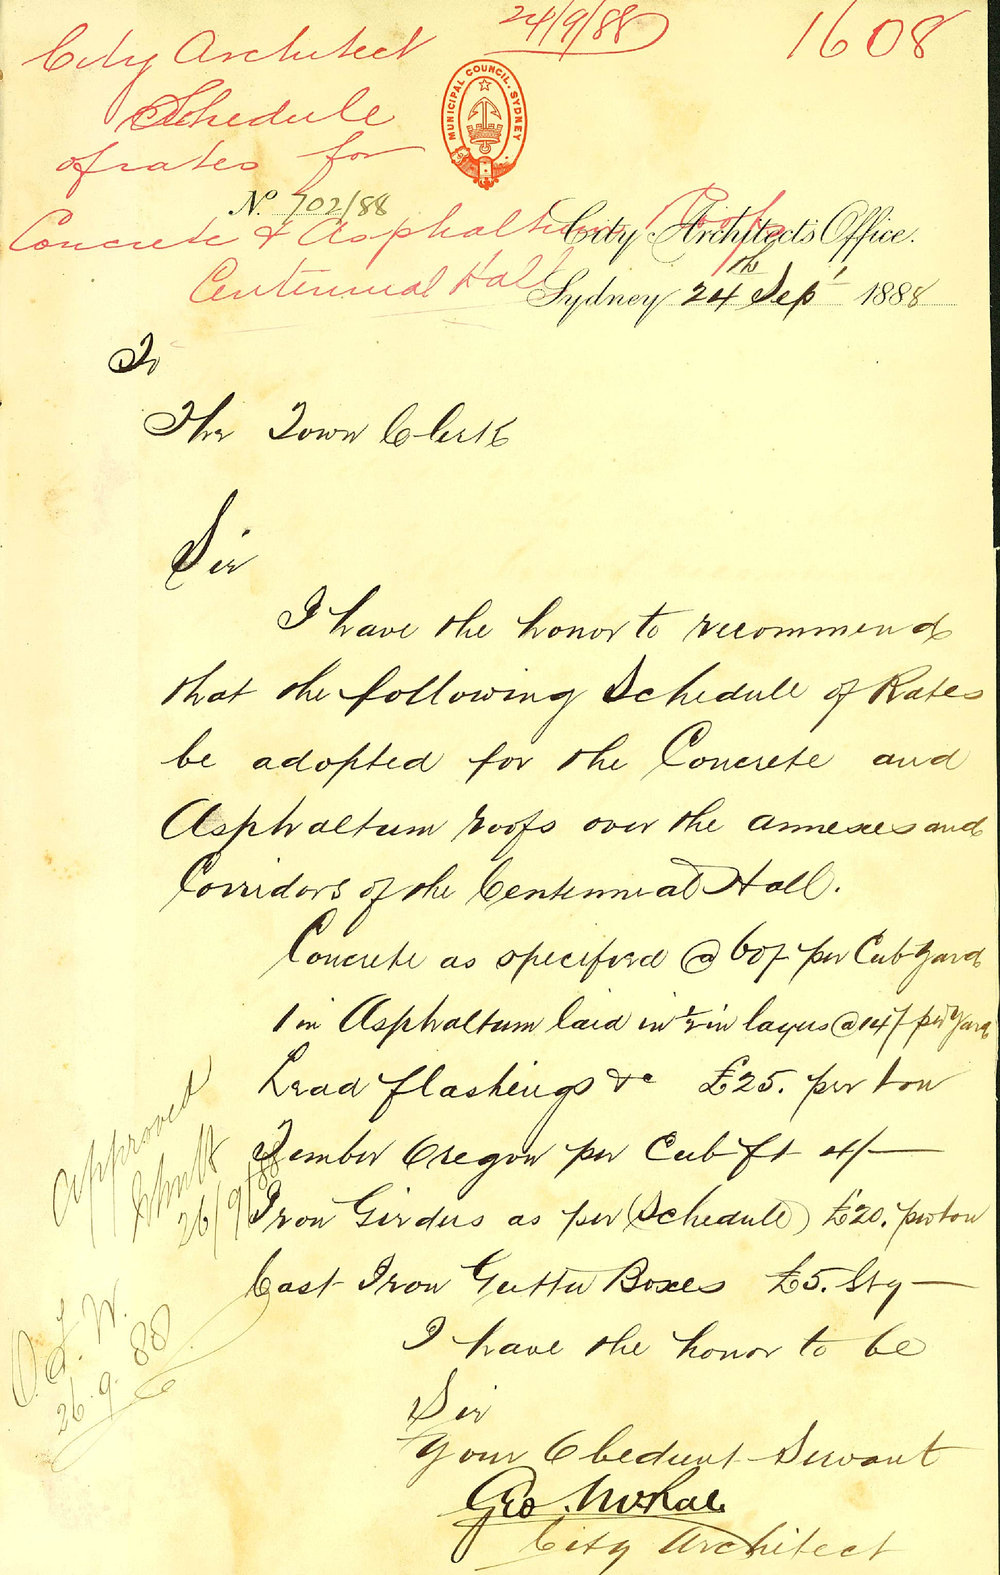 24/9/88
1608
City Architect
Schedule
of rates for
Concrete & Asphaltum Roofs
Centennial Hall
MUNICIPAL COUNCIL. SYDNEY
No. 702/88
City Architect's Office.
Sydney 24th Sep' 1888
To
The Town Clerk
Sir
I have the honor to recommend
that the following Schedule of Rates
be adopted for the Concrete and
Asphaltum roofs over the annexes and
Corridors of the Centennial Hall.
Concrete as specified @ 60/- per Cub Yard
1 in Asphaltum laid in ½ in layers @ 14/- per Yard
Lead flashings &c £25. per ton
Timber Oregon per Cub ft 4/-
Iron Girders as per (Schedule) £20. per ton
Cast Iron Gutter Boxes £5. Stg
I have the honor to be
Sir
Your Obedient Servant
Geo. McRae
City Architect
Approved
26/9/88
26.9.88